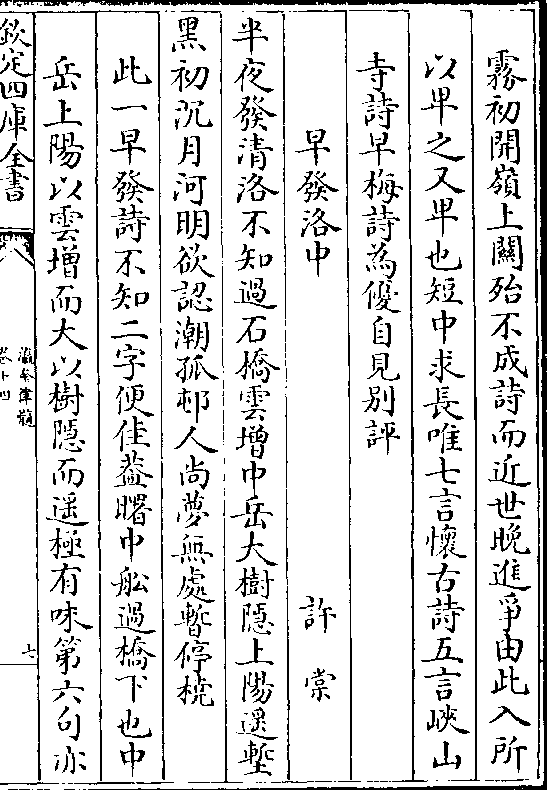 霧初開嶺上關殆不成詩而近世晚進爭由此入所
以卑之又卑也短中求長唯七言懷古詩五言峽山
寺詩早梅詩為優自見別評
早發洛中 許棠
半夜發清洛不知過石橋雲增中岳大樹隱上陽遥塹
黑初沉月河明欲認潮孤邨人尚夢無處暫停橈
此一早發詩不知二字便佳葢曙中船過橋下也中
岳上陽以雲增而大以樹隱而遥極有味第六句亦
欽定四庫全書
瀛奎律髓
卷十四
七